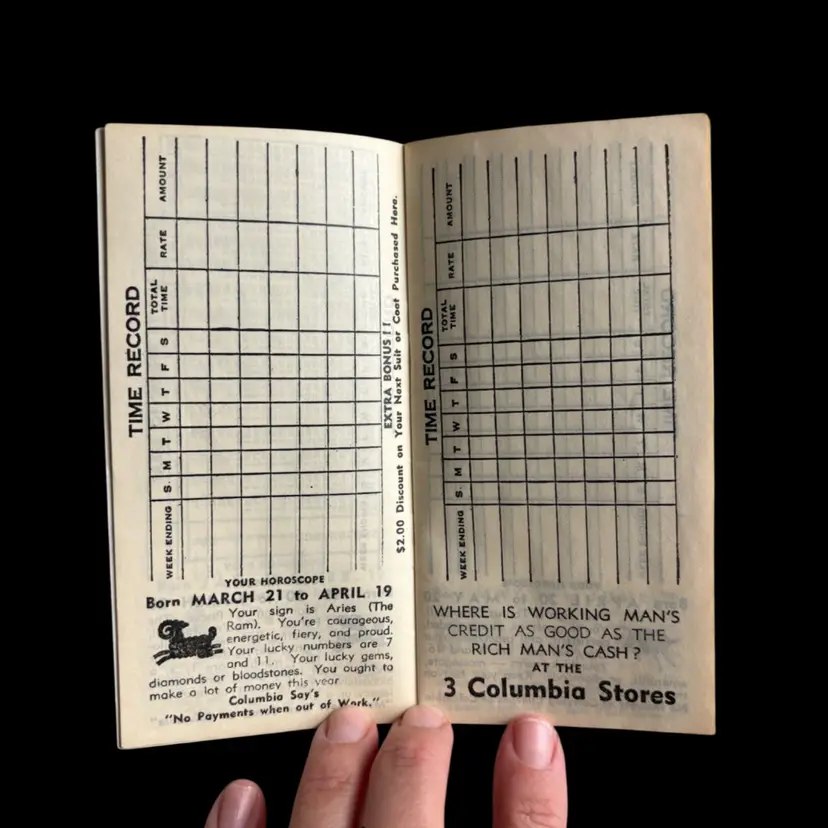 TIME RECORD
WEEK ENDING
S
M
T
W
T
F
S
TOTAL TIME
RATE
AMOUNT
EXTRA BONUS!!
$2.00 Discount on Your Next Suit or Coat Purchased Here.
YOUR HOROSCOPE
Born MARCH 21 to APRIL 19
Your sign is Aries (The
Ram). You're courageous,
energetic, fiery, and proud.
Your lucky numbers are 7
and 11. Your lucky gems,
diamonds or bloodstones. You ought to
make a lot of money this year
Columbia Say's
"No Payments when out of Work."
TIME RECORD
WEEK ENDING
S
M
T
W
T
F
S
TOTAL TIME
RATE
AMOUNT
WHERE IS WORKING MAN'S
CREDIT AS GOOD AS THE
RICH MAN'S CASH?
AT THE
3 Columbia Stores